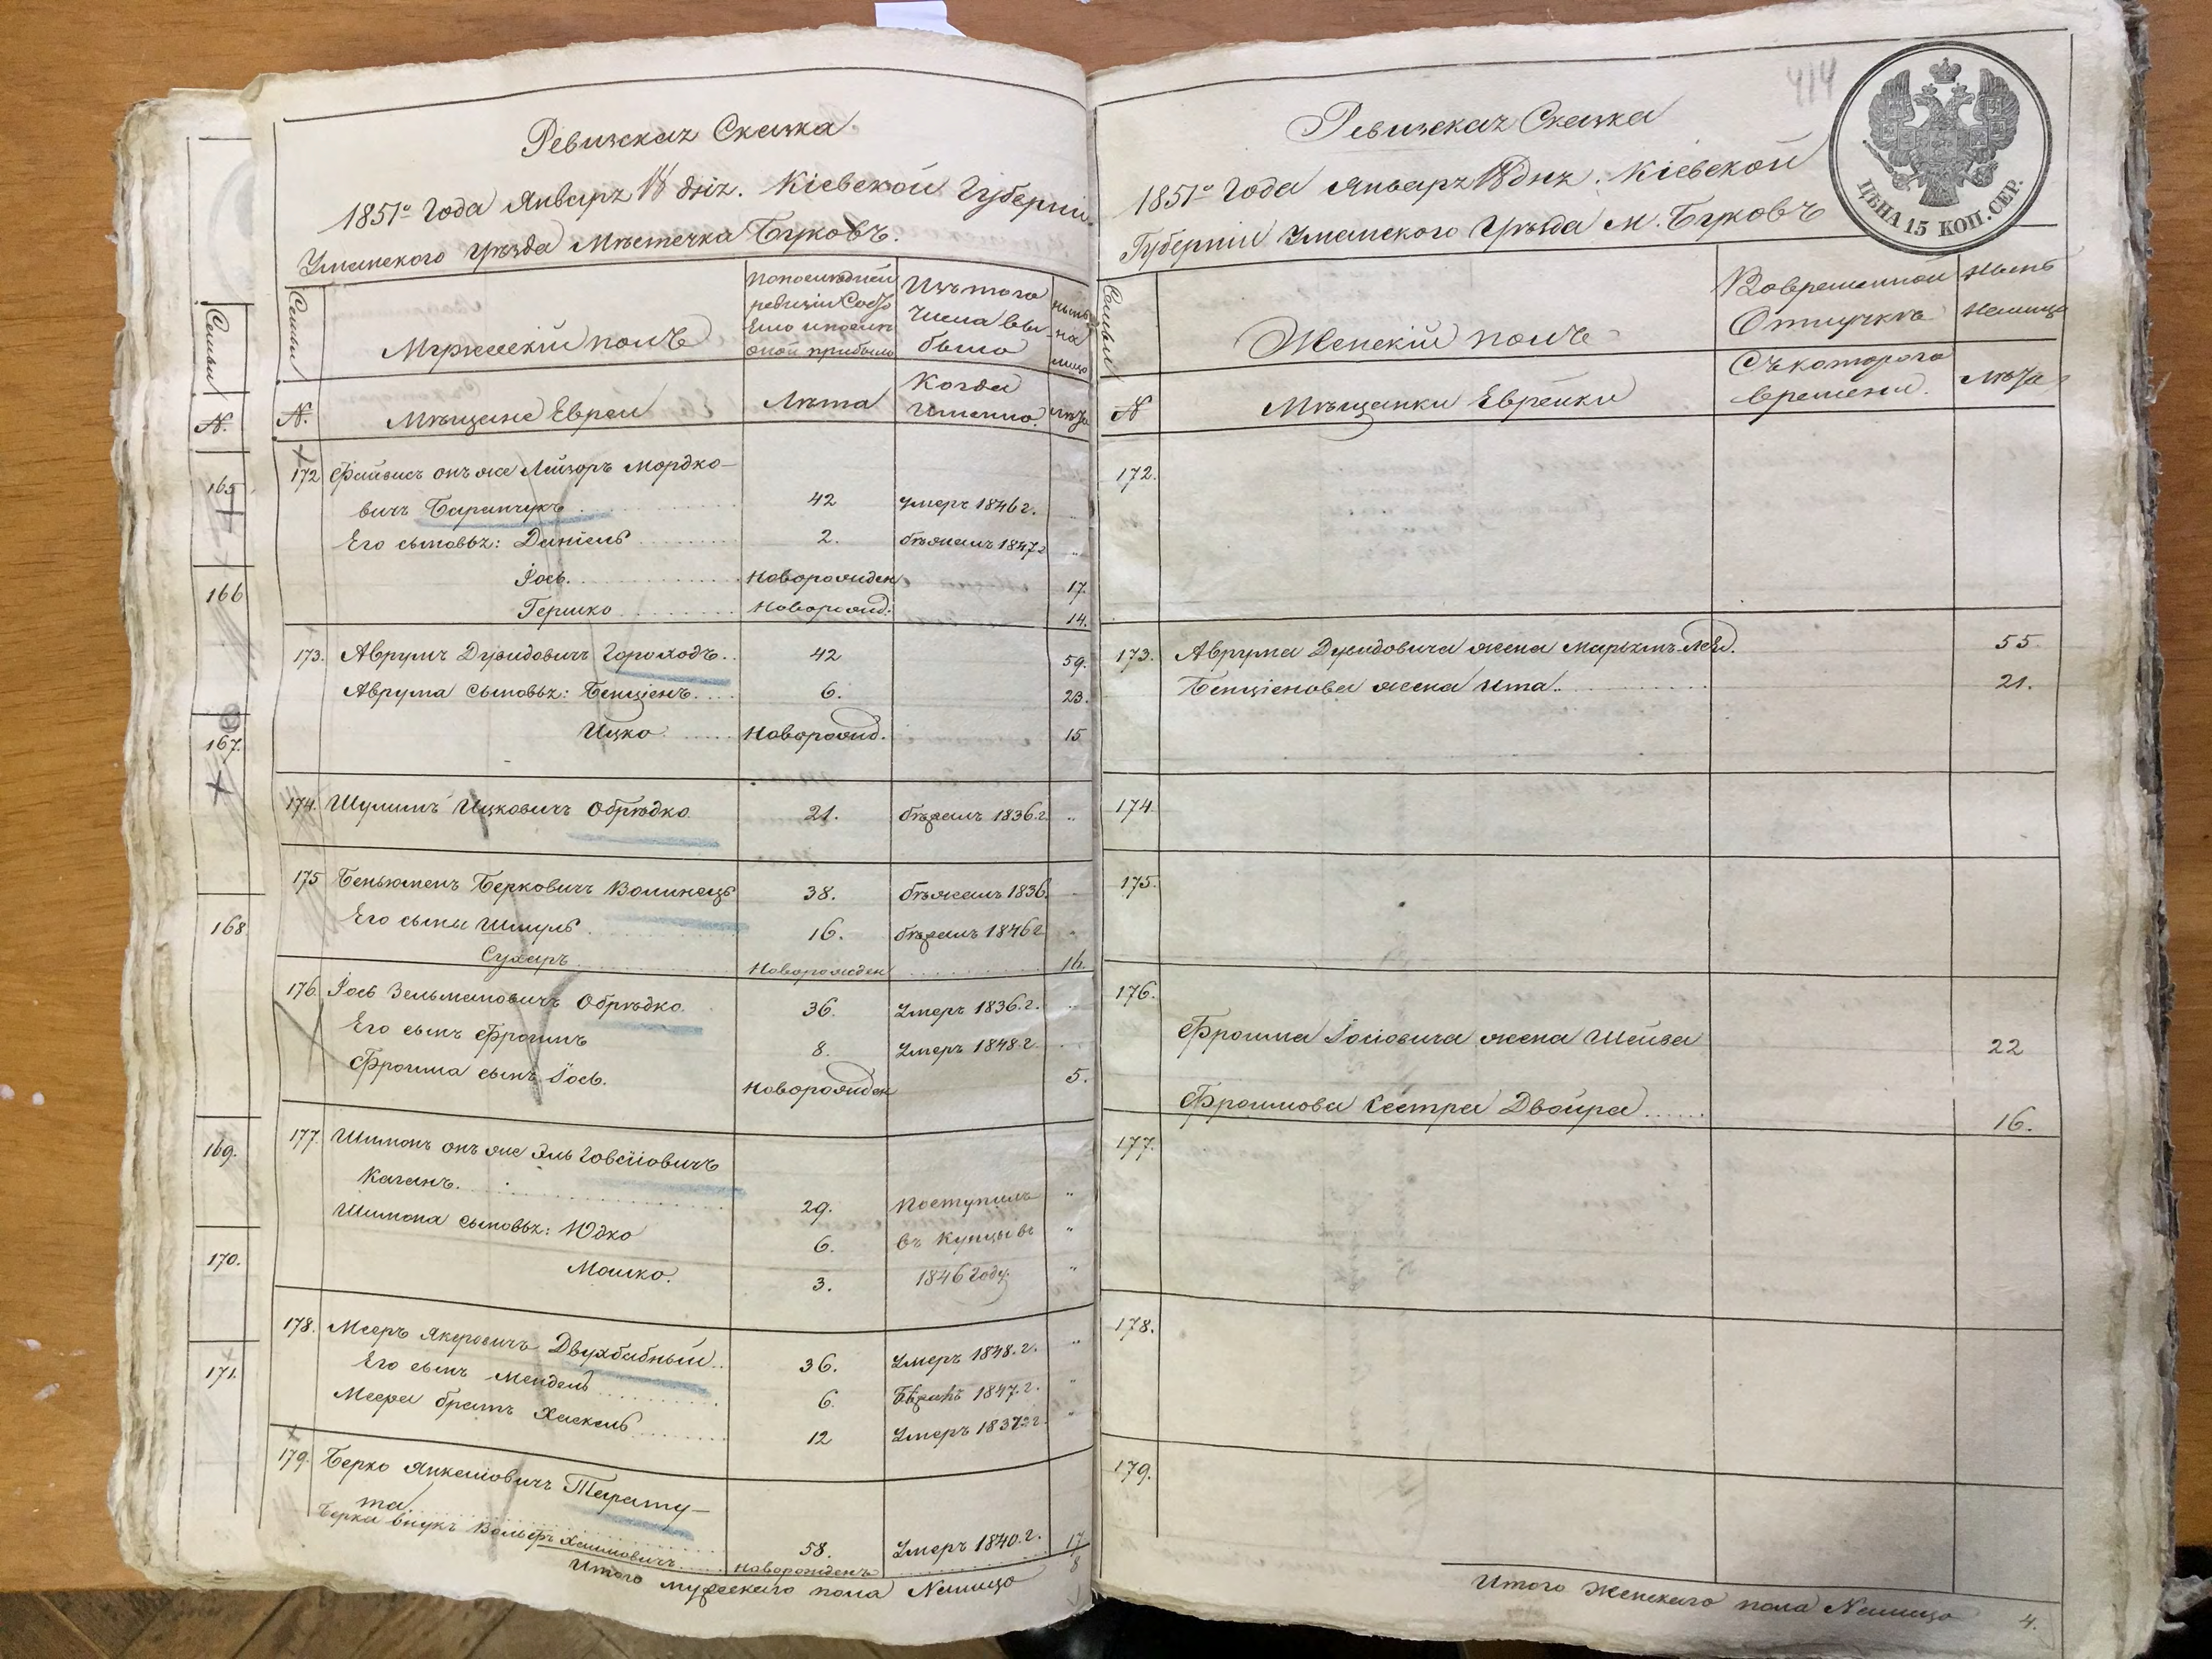 414
Ревизская Сказка
1851го года Января 18 дня. Кіевской Губерніи
Уманского уѣзда Мѣстечка Буковъ.
Семьи
Мужескій полъ
По послѣдней
ревизіи Состо
яло и послѣ
оной прибыло
Изъ того
Числа вы
было
нынѣ
на
лицо
N.
Мѣщане Евреи
Лѣта
Когда
Именно.
лѣта
172 Файвисъ онъ же Лейзоръ Мордко-
вичъ Баранчукъ 42 умеръ 1846 г.
Его сыновья: Даніель 2. бѣжалъ 1847 г
Іось новорожден 17.
Гершко новорожд. 14.
173. Аврумъ Дувидовичъ Горододъ 42 59.
Аврума сыновья: Бенціенъ 6. 23.
Ицко новорожд. 15
174. Шулимъ Ицковичъ Обрѣдко 21. бѣжалъ 1836. г.
175 Беньюменъ Берковичъ Волинецъ 38. бѣжалъ 1836.
Его сыны Шмуль 16. бѣжалъ 1846 г
Сухаръ новорожден 16.
176. Іось Зельмановичъ Обрѣдко 36. Умеръ 1836. г.
Его сынъ Фроимъ 8. Умеръ 1848. г.
Фроима сынъ Іось. новорожден 5.
177. Шимонъ онъ же Эль Говсіовичъ
Каганъ. 29. поступилъ
Шимона сыновья: Юдко 6. въ купцы въ
Мошко. 3. 1846 году.
178. Мееръ Янкеровичъ Двухбабный 36. Умеръ 1848. г.
Его сынъ Мендель 6. Бѣжалъ 1847. г.
Меера братъ Хаскель 12 Умеръ 1837 г.
179. Берко Янкелiовичъ Тарату-
та 58. Умеръ 1840. г.
Берка внукъ Вольфъ Хаимовичъ новорожденъ 17
Итого мужескаго пола Налицо 8
Семьи
N.
165
166
167.
168
169.
170.
171.
Ревизская Сказка
1851го года Января 18 дня. Кіевской
Губерніи Уманского уѣзда М. Буковъ
ЦѢНА 15 КОП. СЕР.
Семьи
Женскій полъ
Во временной
Отлучкѣ
Нынѣ
Налицо
N
Мѣщанки Еврейки
Съ котораго
времени.
Лѣта
172.
173. Аврума Дувидовича жена Марьямъ-Лея. 55
Бенціенова жена Ита. 21.
174.
175.
176.
Фроима Іосіовича жена Шейва 22
Фроимова Сестра Двойра 16.
177.
178.
179.
Итого Женскаго пола Налицо 4.